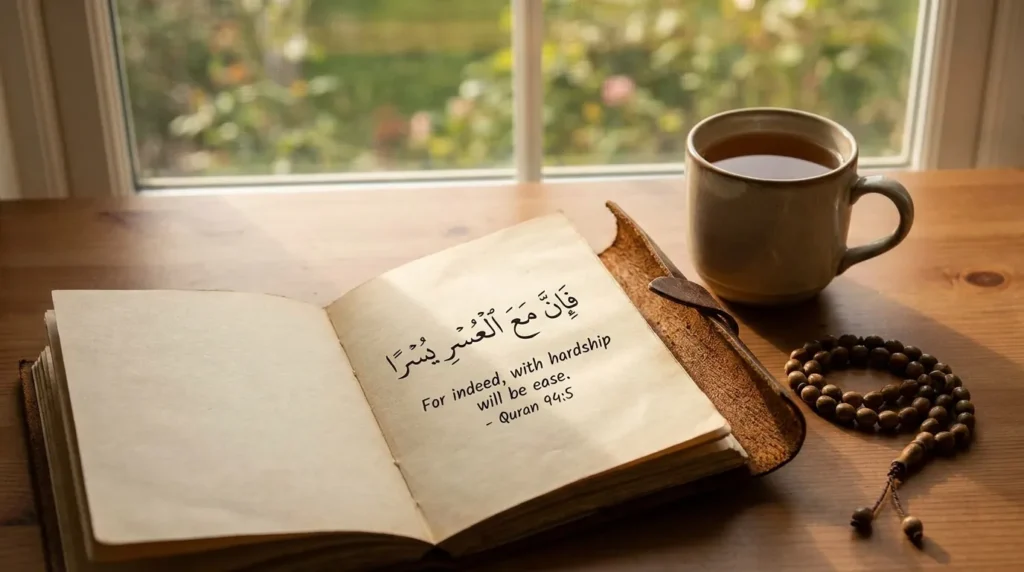 فَإِنَّ مَعَ ٱلْعُسْرِ يُسْرًا
For indeed, with hardship
will be ease.
- Quran 94:5